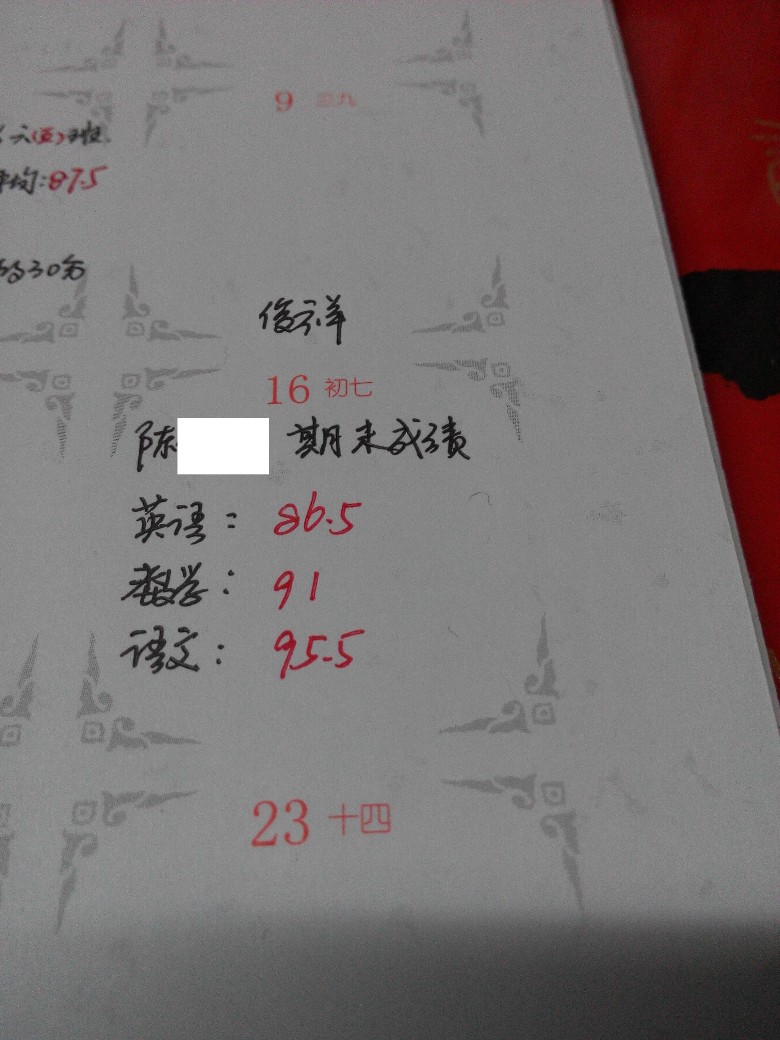 9 三九
六(五)班.
平均:87.5
30分
俊祥
16 初七
陈 期末成绩
英语: 86.5
数学: 91
语文: 95.5
23 十四